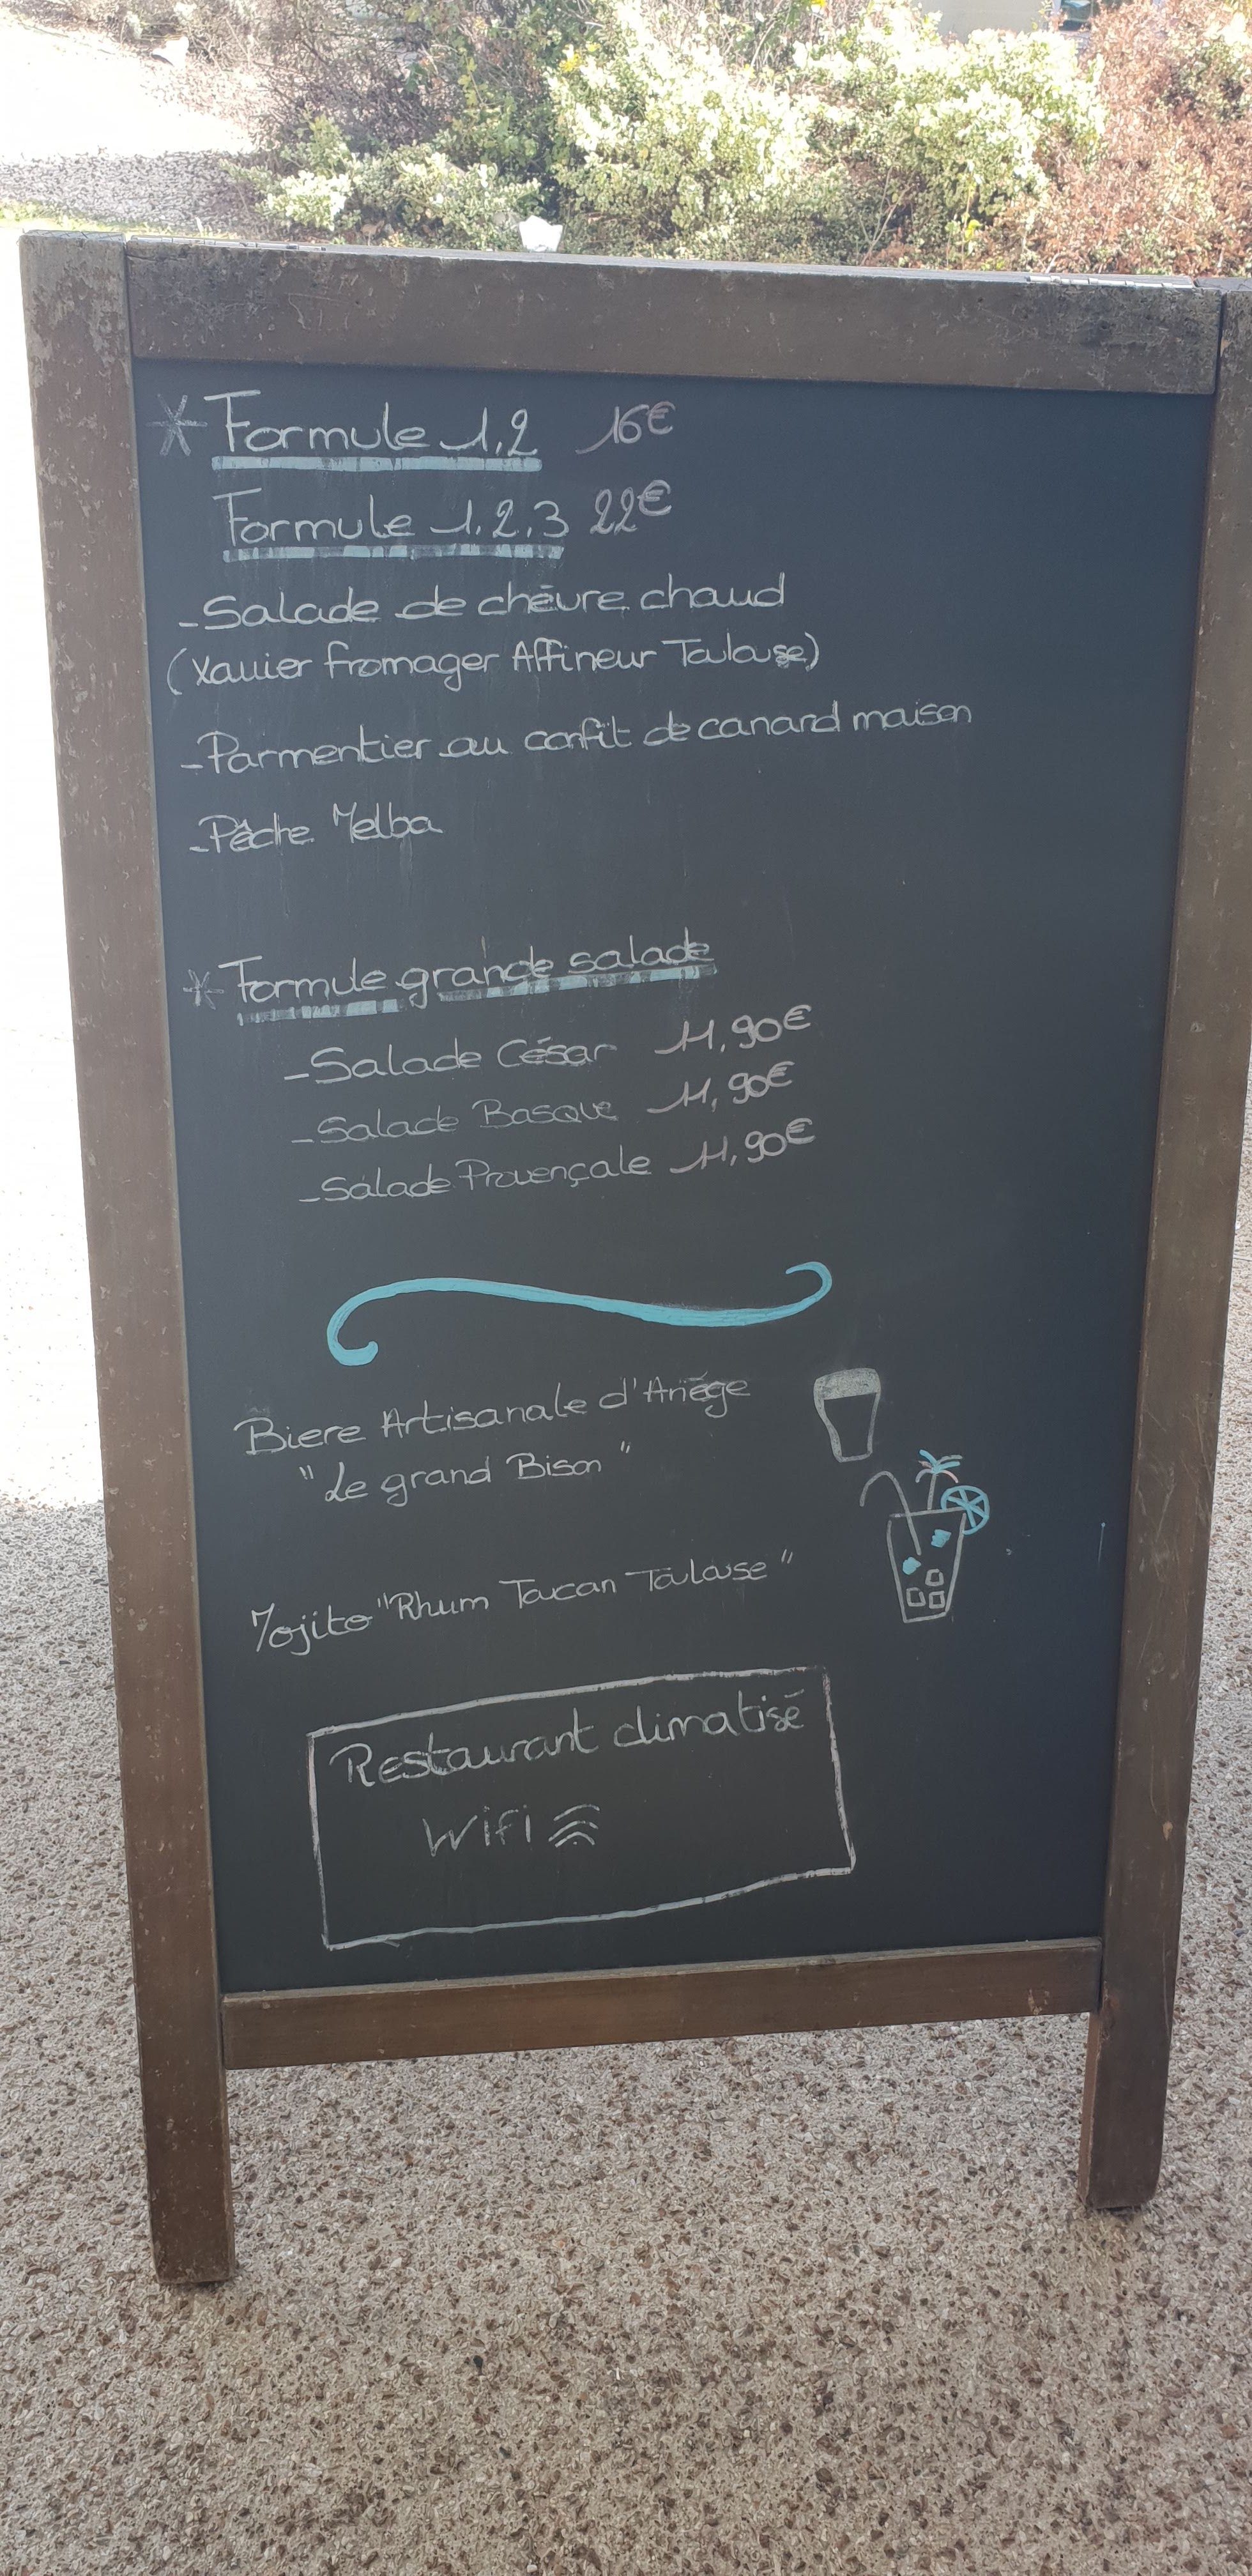 * Formule 1,2 16€
Formule 1.2.3 22€
- Salade de chèvre chaud
(Xavier fromager Affineur Toulouse)
- Parmentier au confit de canard maison
- Pêche Melba
* Formule grande salade
- Salade César 11,90€
- Salade Basque 11,90€
- Salade Provençale 11,90€
Biere Artisanale d'Ariège
"Le grand Bison"
Mojito "Rhum Toucan Toulouse"
Restaurant climatisé
Wifi